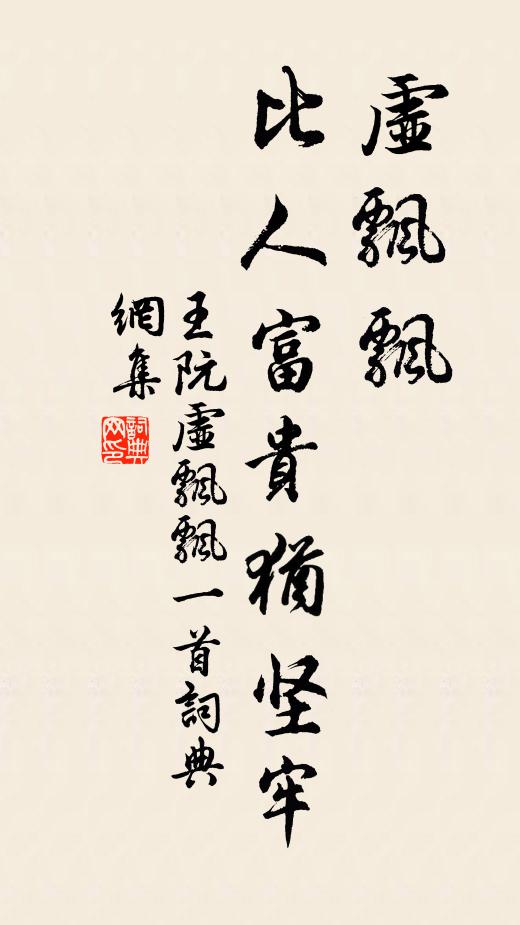 虛飄飄
比人富貴猶坚牢
王阮虛飄飄一首詞典
網集
詞典
网印